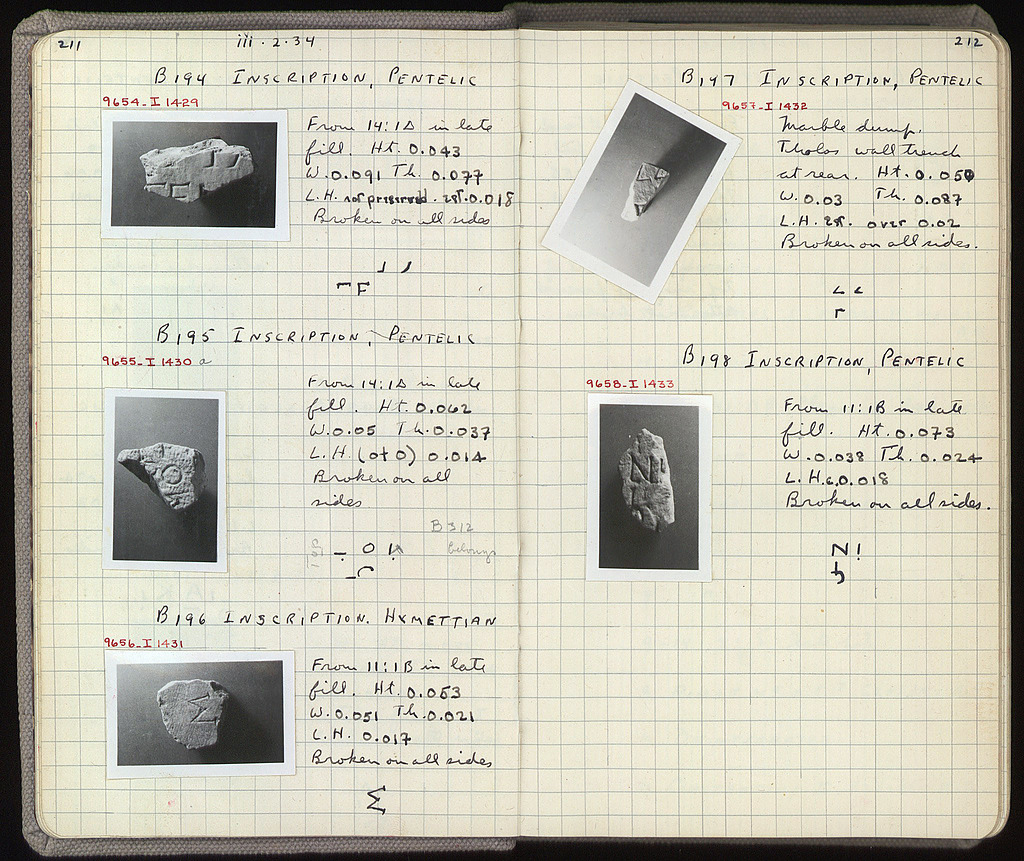 211
iii . 2 . 34
B194 INSCRIPTION, PENTELIC
9654-I 1429
From 14:1Δ in late
fill. Ht. 0.043
W. 0.091 Th. 0.077
L.H. not preserved. est. 0.018
Broken on all sides
F
B195 INSCRIPTION, PENTELIC
9655-I 1430 a
From 14:1Δ in late
fill. Ht. 0.062
W. 0.05 Th. 0.037
L.H. (of O) 0.014
Broken on all
sides
B 312
belongs
O
B196 INSCRIPTION. HYMETTIAN
9656-I 1431
From 11:1B in late
fill. Ht. 0.053
W. 0.051 Th. 0.021
L.H. 0.017
Broken on all sides
Σ
212
B147 INSCRIPTION, PENTELIC
9657-I 1432
Marble dump.
Tholos wall trench
at rear. Ht. 0.050
W. 0.03 Th. 0.087
L.H. est. over 0.02
Broken on all sides.
B198 INSCRIPTION, PENTELIC
9658-I 1433
From 11:1B in late
fill. Ht. 0.073
W. 0.038 Th. 0.024
L.H. c. 0.018
Broken on all sides.
N